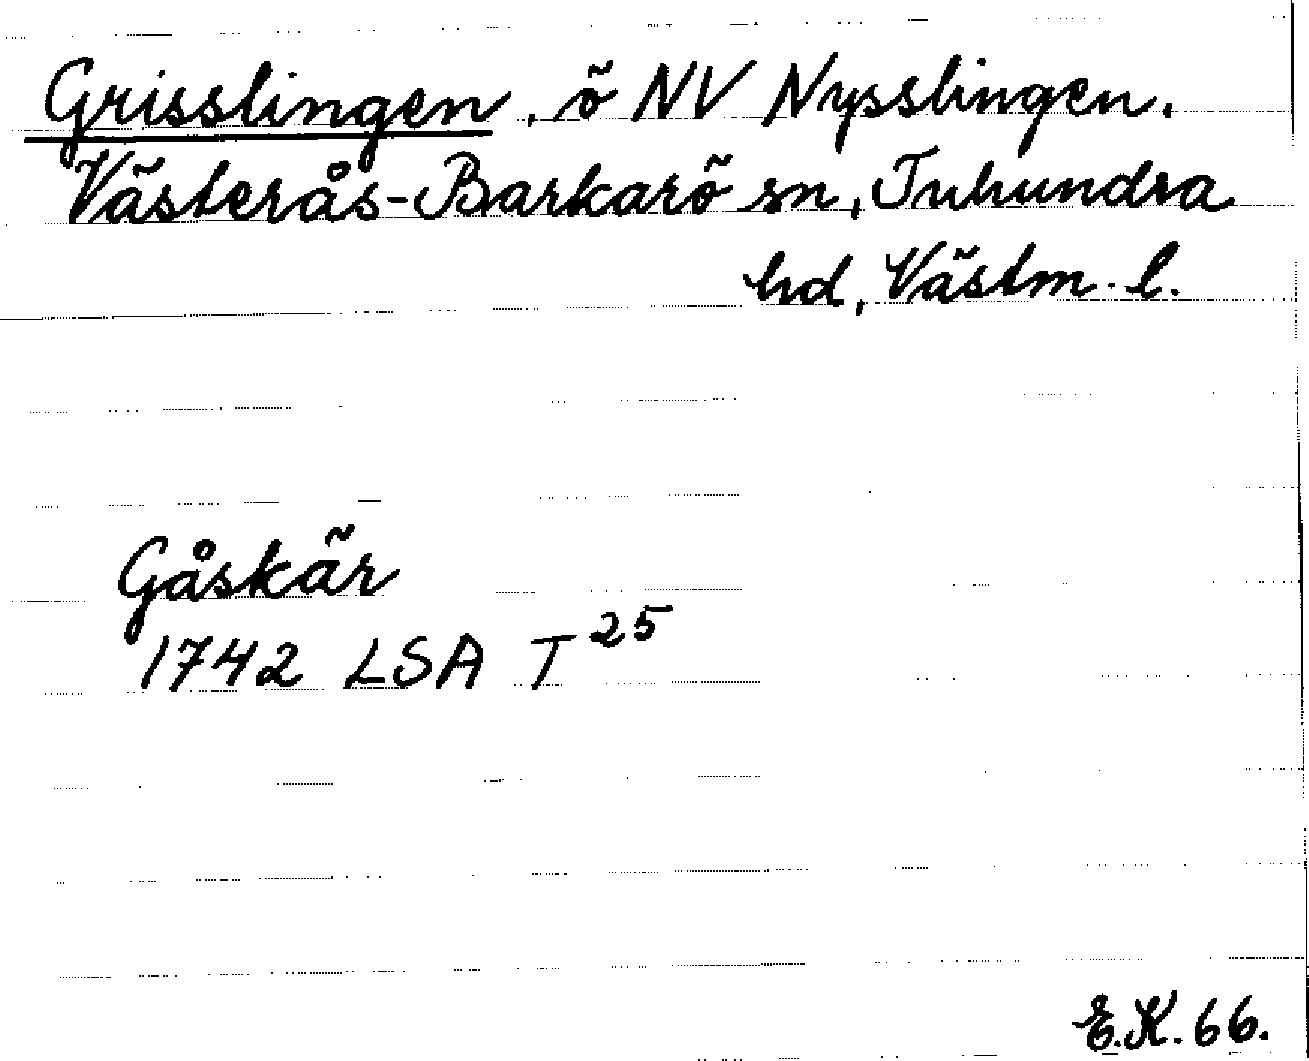 Grisslingen, ö NV Nysslingen.
Västerås-Barkarö sn, Tuhundra
hd, Västm. l.
Gåskär
1742 LSA T 25
E.K. 66.